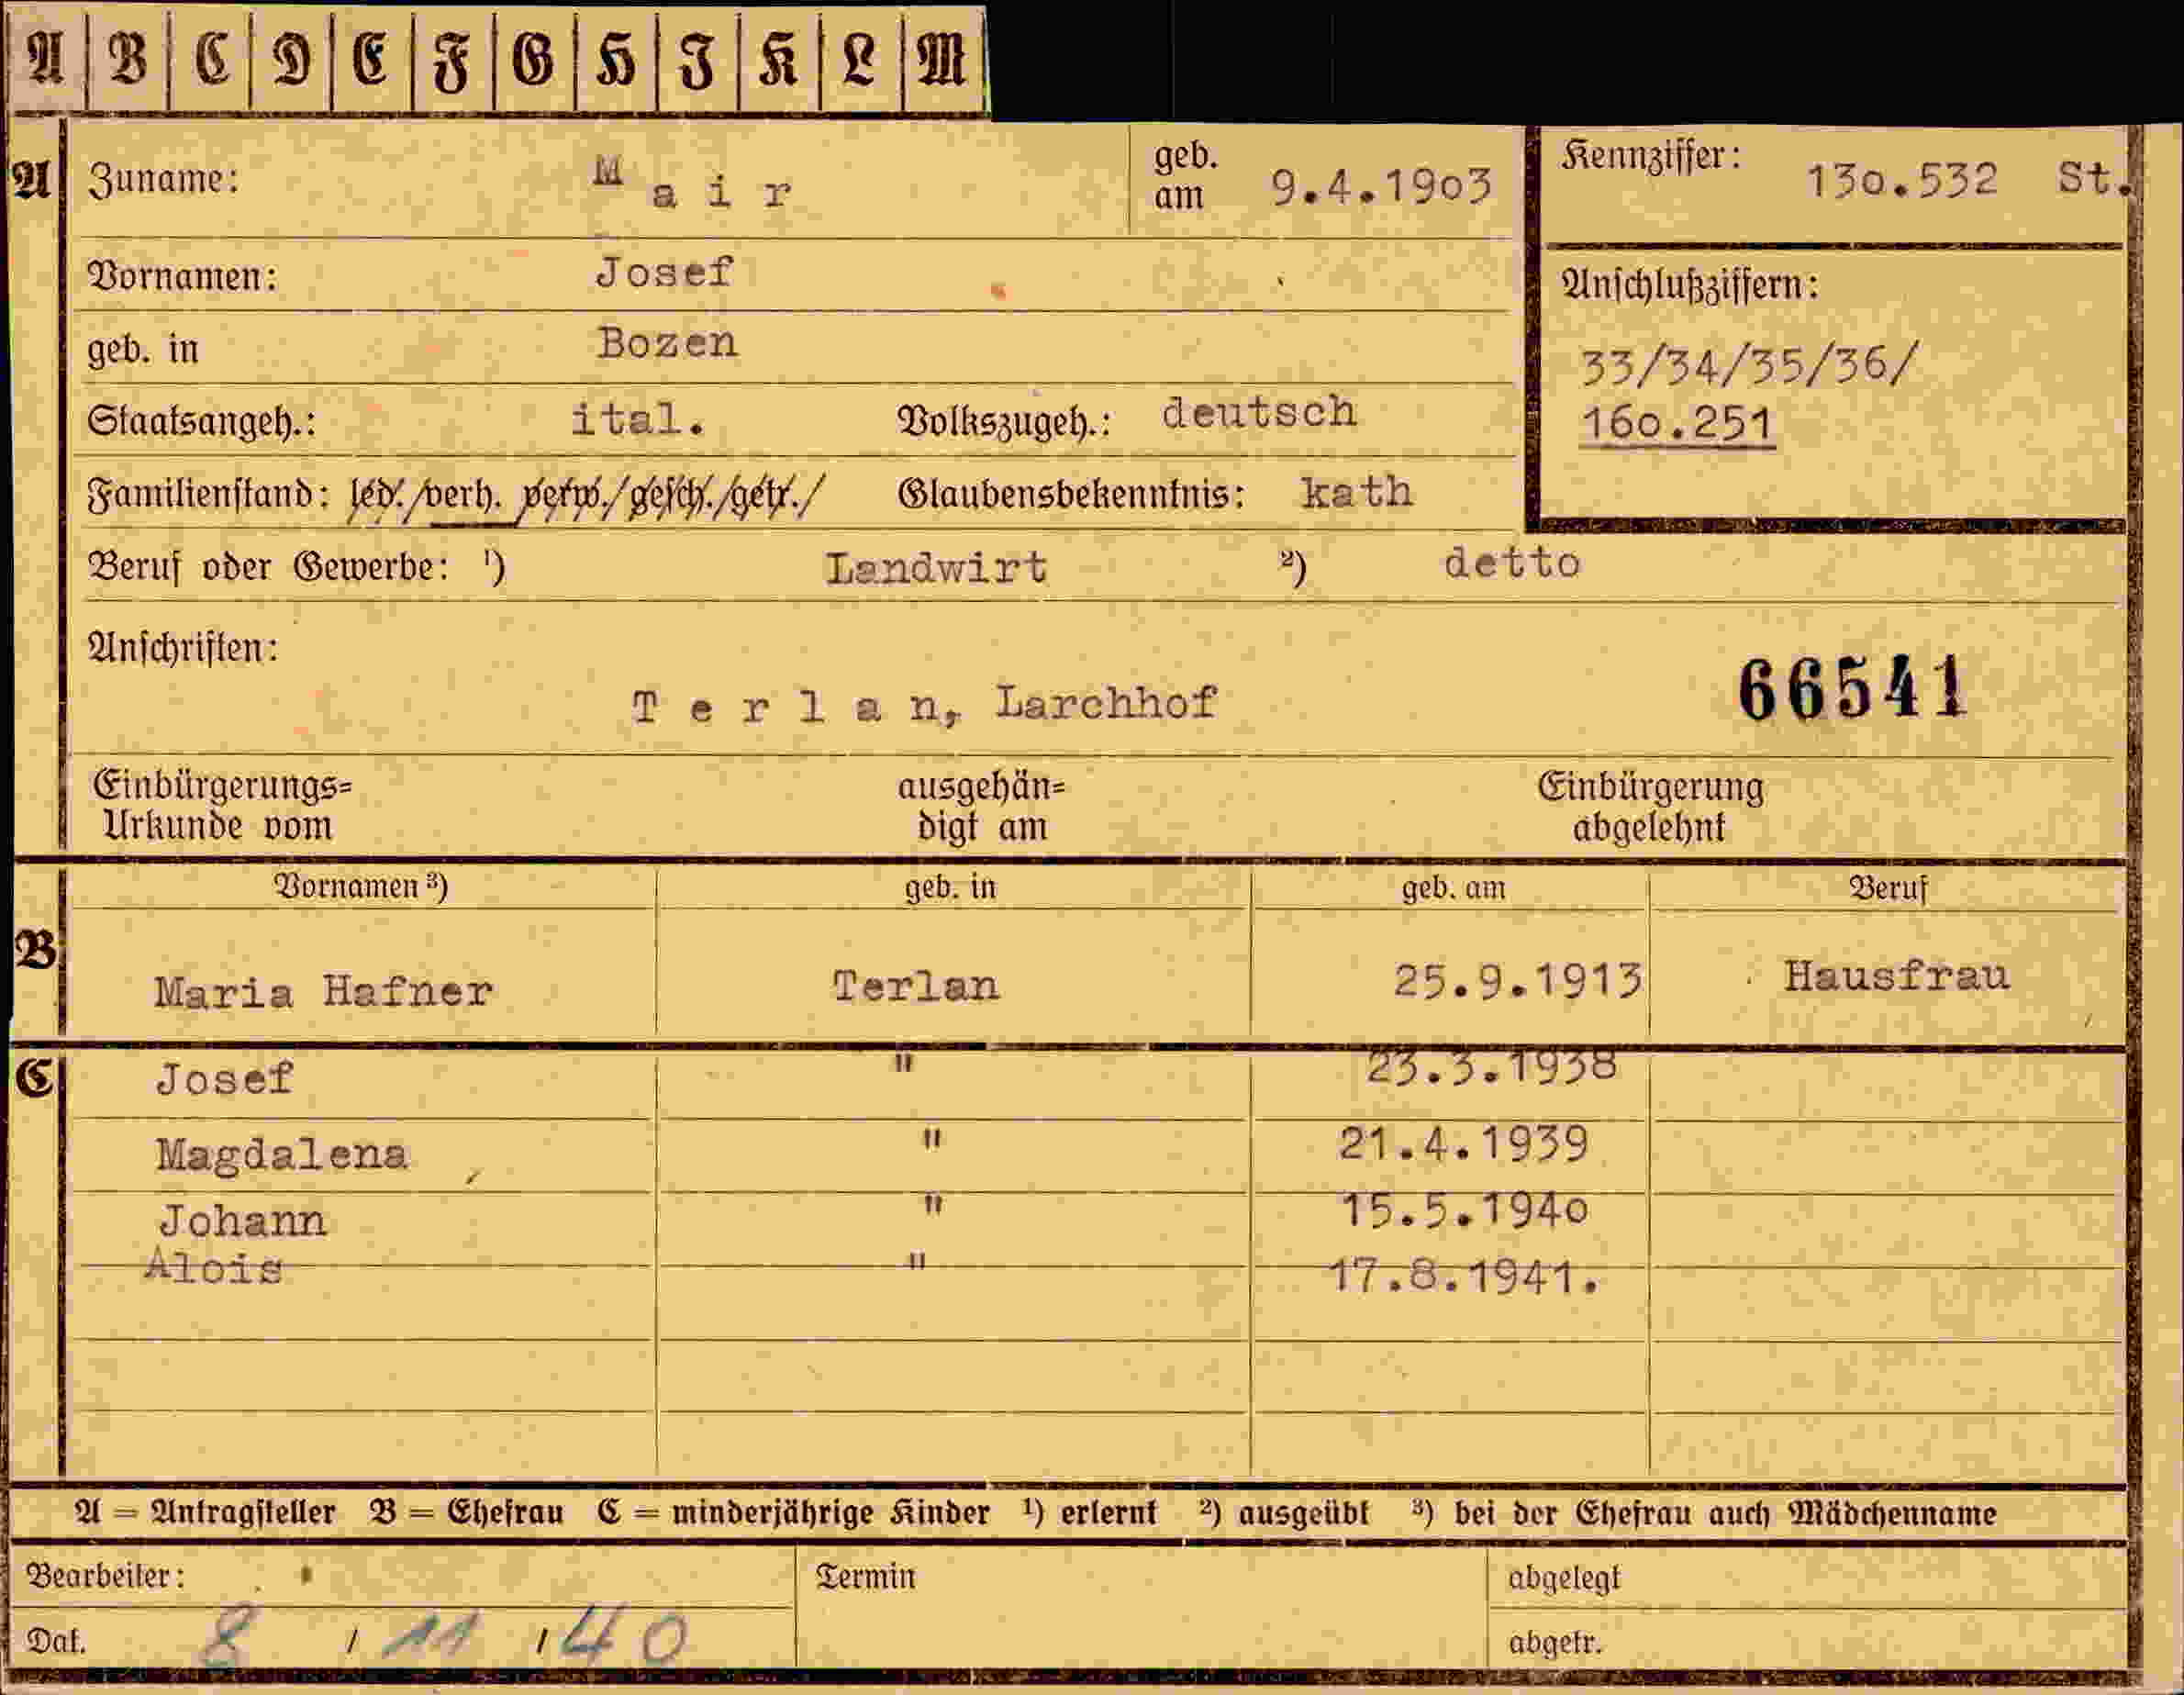 A B C D E F G H I K L M
A Zuname: M a i r geb. am 9.4.19o3 Kennziffer: 13o.532 St.
Vornamen: Josef Anschlußziffern:
geb. in Bozen 33/34/35/36/
Staatsangeh.: ital. Volkszugeh.: deutsch 16o.251
Familienstand: led./verh. verw./gesch./getr./ Glaubensbekenntnis: kath
Beruf oder Gewerbe: ¹) Landwirt ²) detto
Anschriften:
T e r l a n, Larchhof 66541
Einbürgerungs= ausgehän= Einbürgerung
Urkunde vom digt am abgelehnt
Vornamen ³) geb. in geb. am Beruf
B Maria Hafner Terlan 25.9.1913 Hausfrau
C Josef " 23.3.1938
Magdalena " 21.4.1939
Johann " 15.5.194o
Alois " 17.8.1941.
A = Antragsteller B = Ehefrau C = minderjährige Kinder ¹) erlernt ²) ausgeübt ³) bei der Ehefrau auch Mädchenname
Bearbeiter: Termin abgelegt
Dat. 8 / 11 / 40 abgetr.